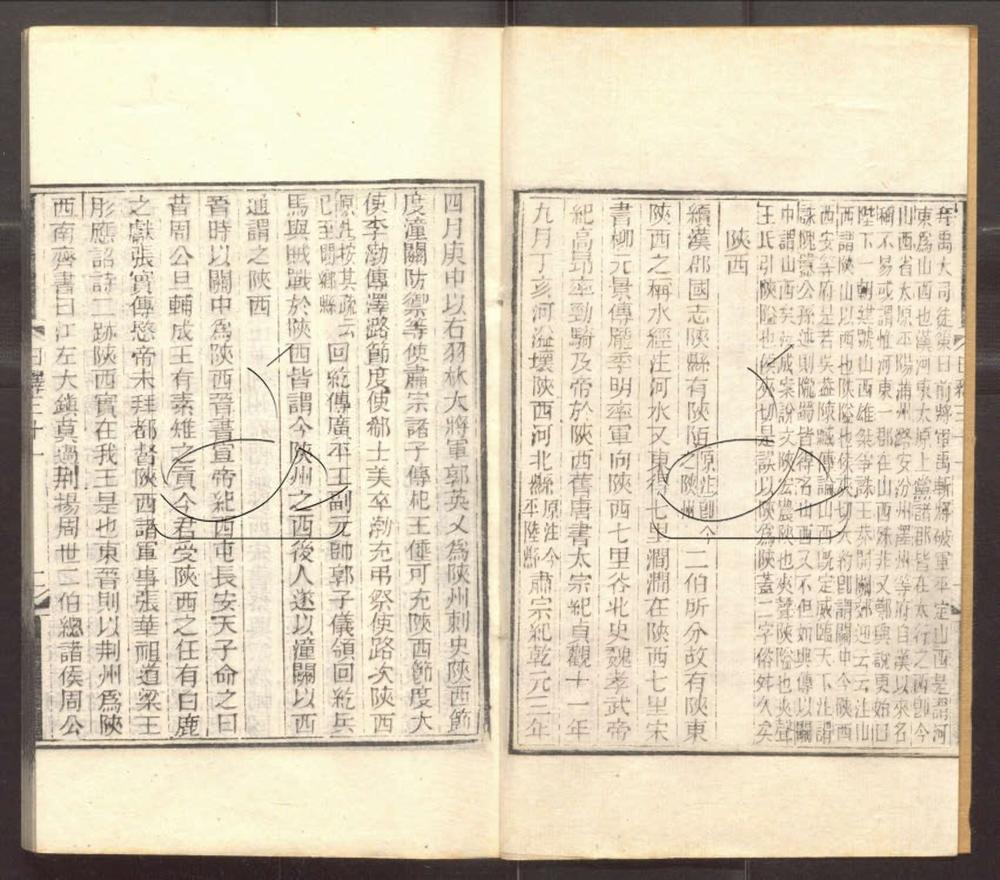 拜禹大司徒策曰前將軍禹斬將破軍平定山西是謂河
東為山西也漢河東太原上黨諸郡皆在太行之西卽今
山西省太原平陽蒲州潞安汾州澤州等府自漢以來名
稱不易或謂惟河東一郡在山西殊非又鄭興說更始曰
陛下一朝建號山西雄桀爭誅王莽開關郊迎云云注山
西謂陝山以西也陝隘也侯夾切
西安等府是若吳蓋陳臧傳論山西旣定威臨天下注謂
誅隗囂公孫述則隴蜀皆得名山西又不但如興傳以關
中謂山西矣
王氏引陝隘也侯夾切是誤以陝爲陜蓋二字俗舛久矣
陝西
續漢郡國志陝縣有陝陌原注卽今之陝州二伯所分故有陝東
陝西之稱水經注河水又東得七里澗澗在陝西七里宋
書柳元景傳龐季明率軍向陝西七里谷北史魏孝武帝
紀高昂率勁騎及帝於陝西舊唐書太宗紀貞觀十一年
九月丁亥河溢壞陝西河北縣原注今平陸縣肅宗紀乾元三年
四月庚申以右羽林大將軍郭英乂爲陝州刺史陝西節
度潼關防禦等使肅宗諸子傳杞王倕可充陝西節度大
使李渤傳澤潞節度使郗士美卒渤充弔祭使路次陝西
原注按其疏云已至閿鄉縣回紇傳廣平王副元帥郭子儀領回紇兵
馬與賊戰於陝西皆謂今陝州之西後人遂以潼關以西
通謂之陝西
晉時以關中爲陝西晉書宣帝紀西屯長安天子命之曰
昔周公旦輔成王有素雉之貢今君受陝西之任有白鹿
之獻張寔傳愍帝末拜都督陝西諸軍事張華祖道梁王
肜應詔詩二跡陝西實在我王是也東晉則以荆州爲陝
西南齊書曰江左大鎮莫過荆揚周世二伯總諸侯周公